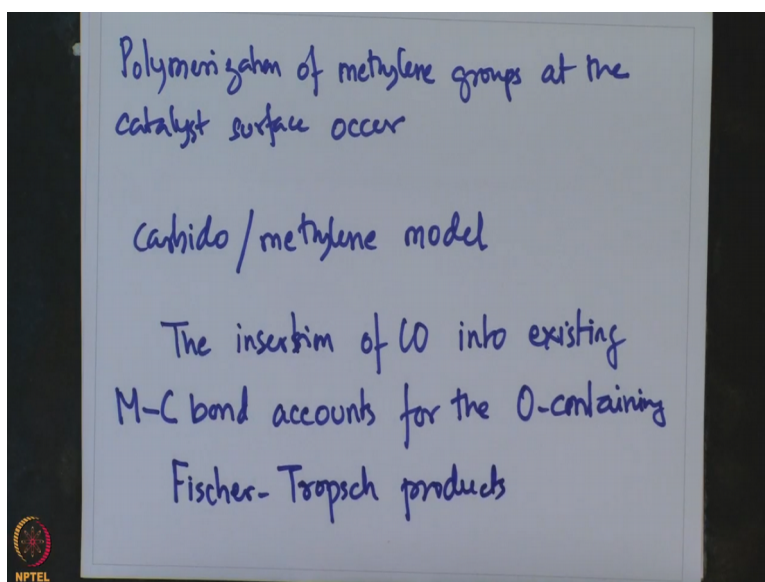 Polymerization of methylene groups at the
catalyst surface occur
carbido/methylene model
The insertion of CO into existing
M-C bond accounts for the O-containing
Fischer-Tropsch products
NPTEL